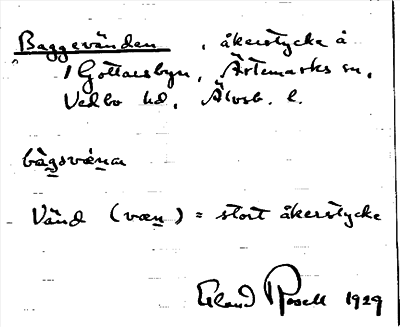 Baggevänden, åkerstycke å
1 Gottarsbyn, Ärtemarks sn,
Vedbo hd, Älvsb. l.
bàgsvæ̀nan
Vänd (væn) = stort åkerstycke
Erland Rosell 1929